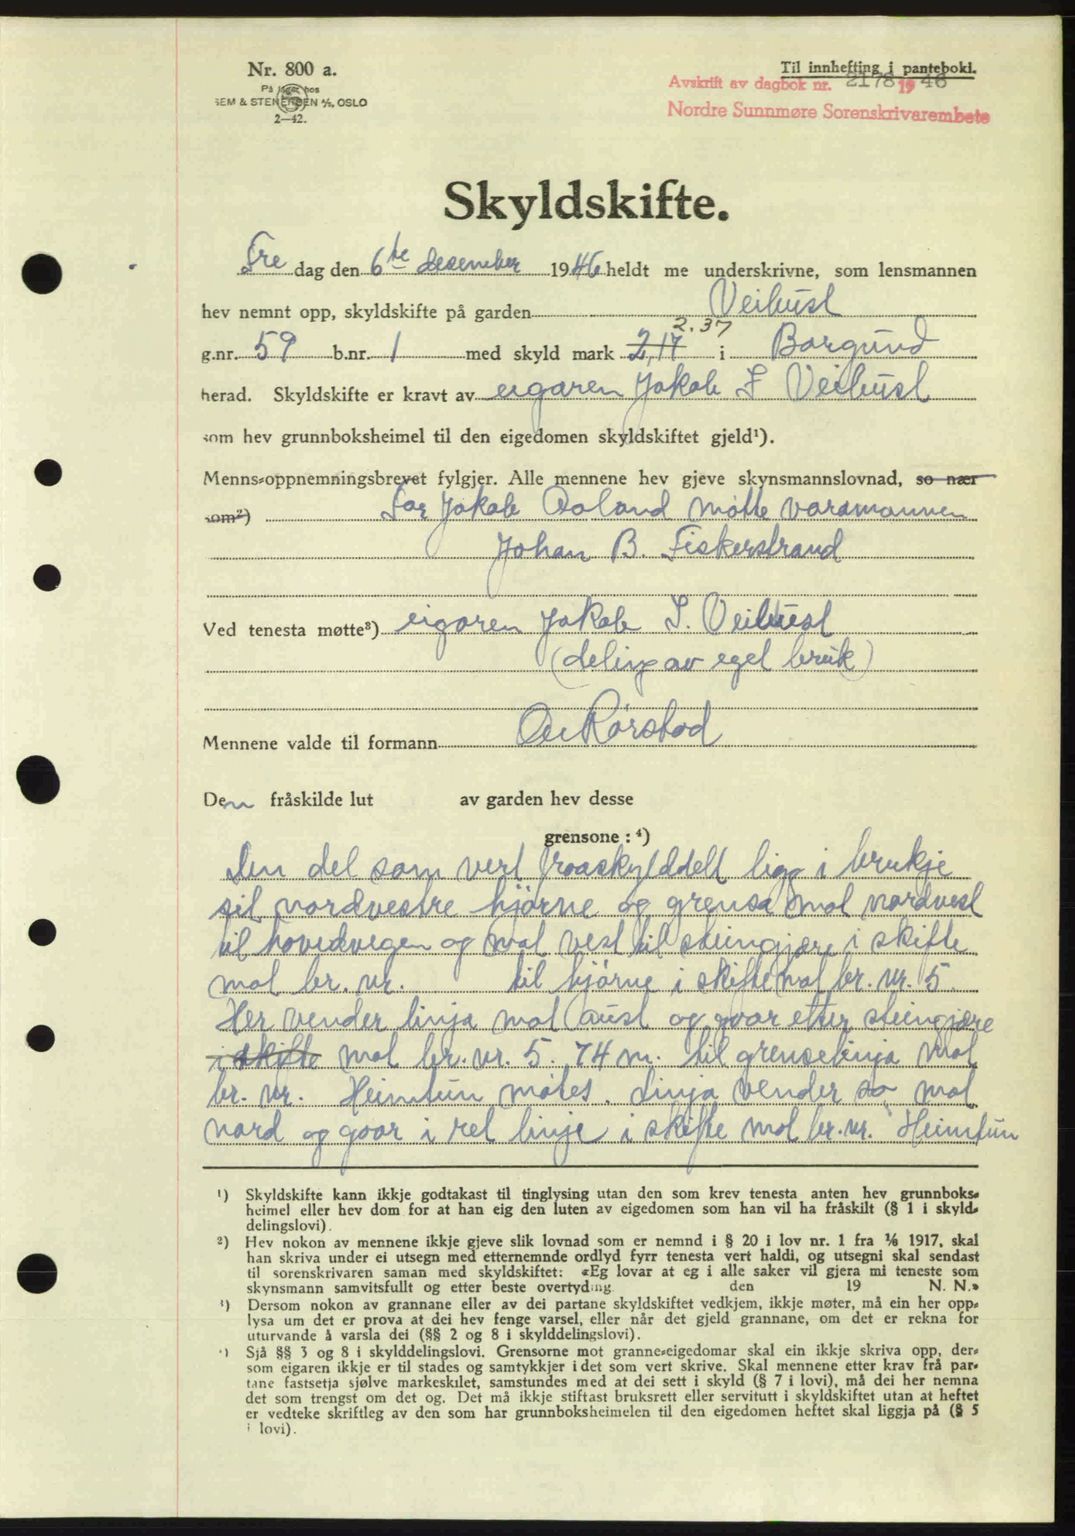 Nr. 800 a.
På lager hos
SEM & STENERSEN A/S, OSLO
2—42.
Til innhefting i panteboki.
Avskrift av dagbok nr. 2178 1946
Nordre Sunnmøre Sorenskrivarembete
Skyldskifte.
Fre dag den 6te desember 1946 heldt me underskrivne, som lensmannen
hev nemnt opp, skyldskifte på garden Veibust
2.37
g.nr. 59 b.nr. 1 med skyld mark 2,17 i Borgund
herad. Skyldskifte er kravt av eigaren Jakob I Veibust
som hev grunnboksheimel til den eigedomen skyldskiftet gjeld¹).
Menns-oppnemningsbrevet fylgjer. Alle mennene hev gjeve skynsmannslovnad, so nær
som²) For Jakob Aaland møtte varamannen
Johan B. Fiskerstrand
Ved tenesta møtte³) eigaren Jakob I. Veibust
(deling av eget bruk)
Mennene valde til formann O. Rørstad
Den fråskilde lut av garden hev desse
grensone : ⁴)
Den del som vert fraaskylddelt ligg i brukje
sit nordvestre hjørne og grensa mot nordvest
til hovedvegen og mot vest til steingjære i skifte
mot br. nr. til hjørne i skifte mot br. nr. 5.
Her vender linja mot aust og gaar etter steingjære
i skifte mot br. nr. 5. 74 m. til grenselinja mot
br. nr. Heimtun møtes. Linja vender so mot
nord og gaar i ret linje i skifte mot br. nr. Heimtun
¹) Skyldskifte kann ikkje godtakast til tinglysing utan den som krev tenesta anten hev grunnboks-
heimel eller hev dom for at han eig den luten av eigedomen som han vil ha fråskilt (§ 1 i skyld-
delingslovi).
²) Hev nokon av mennene ikkje gjeve slik lovnad som er nemnd i § 20 i lov nr. 1 fra ⅙ 1917, skal
han skriva under ei utsegn med etternemnde ordlyd fyrr tenesta vert haldi, og utsegni skal sendast
til sorenskrivaren saman med skyldskiftet: «Eg lovar at eg i alle saker vil gjera mi teneste som
skynsmann samvitsfullt og etter beste overtyding den 19 N. N.»
³) Dersom nokon av grannane eller av dei partane skyldskiftet vedkjem, ikkje møter, må ein her opp-
lysa um det er prova at dei hev fenge varsel, eller når det gjeld grannane, om det er rekna for
uturvande å varsla dei (§§ 2 og 8 i skylddelingslovi).
⁴) Sjå §§ 3 og 8 i skylddelingslovi. Grensorne mot granne-eigedomar skal ein ikkje skriva opp, der-
som eigaren ikkje er til stades og samtykkjer i det som vert skrive. Skal mennene etter krav frå par-
tane fastsetja sjølve markeskilet, samstundes med at dei sett i skyld (§ 7 i lovi), må dei her nemna
det som trengst om det og. Det må ikkje stiftast bruksrett eller servitutt i skyldskiftet utan at heftet
er vedteke skriftleg av den som har grunnboksheimelen til den eigedomen heftet skal liggja på (§ 5
i lovi).